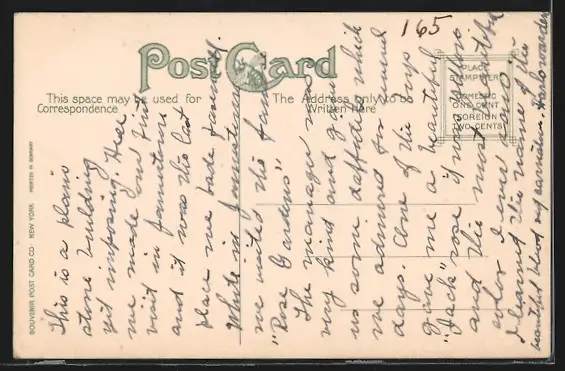 165
Post Card
This space may be used for
Correspondence
The Address only to be
Written here
PLACE
STAMP HERE
DOMESTIC
ONE CENT
FOREIGN
TWO CENTS
SOUVENIR POST CARD CO. NEW YORK PRINTED IN GERMANY
This is a plain
stone building
yet imposing. Here
we made our first
visit in Jamestown
and it was the last
place we bade farewell.
While in Jamestown
we visited the famous
"Rose Gardens"
The manager was
very kind and gave
us some daffodils which
we admired for several
days. One of the boys
gave me a beautiful
"Jack" rose it was
and the most
color I ever saw.
I learned the name of the
beautiful blood red carnation.